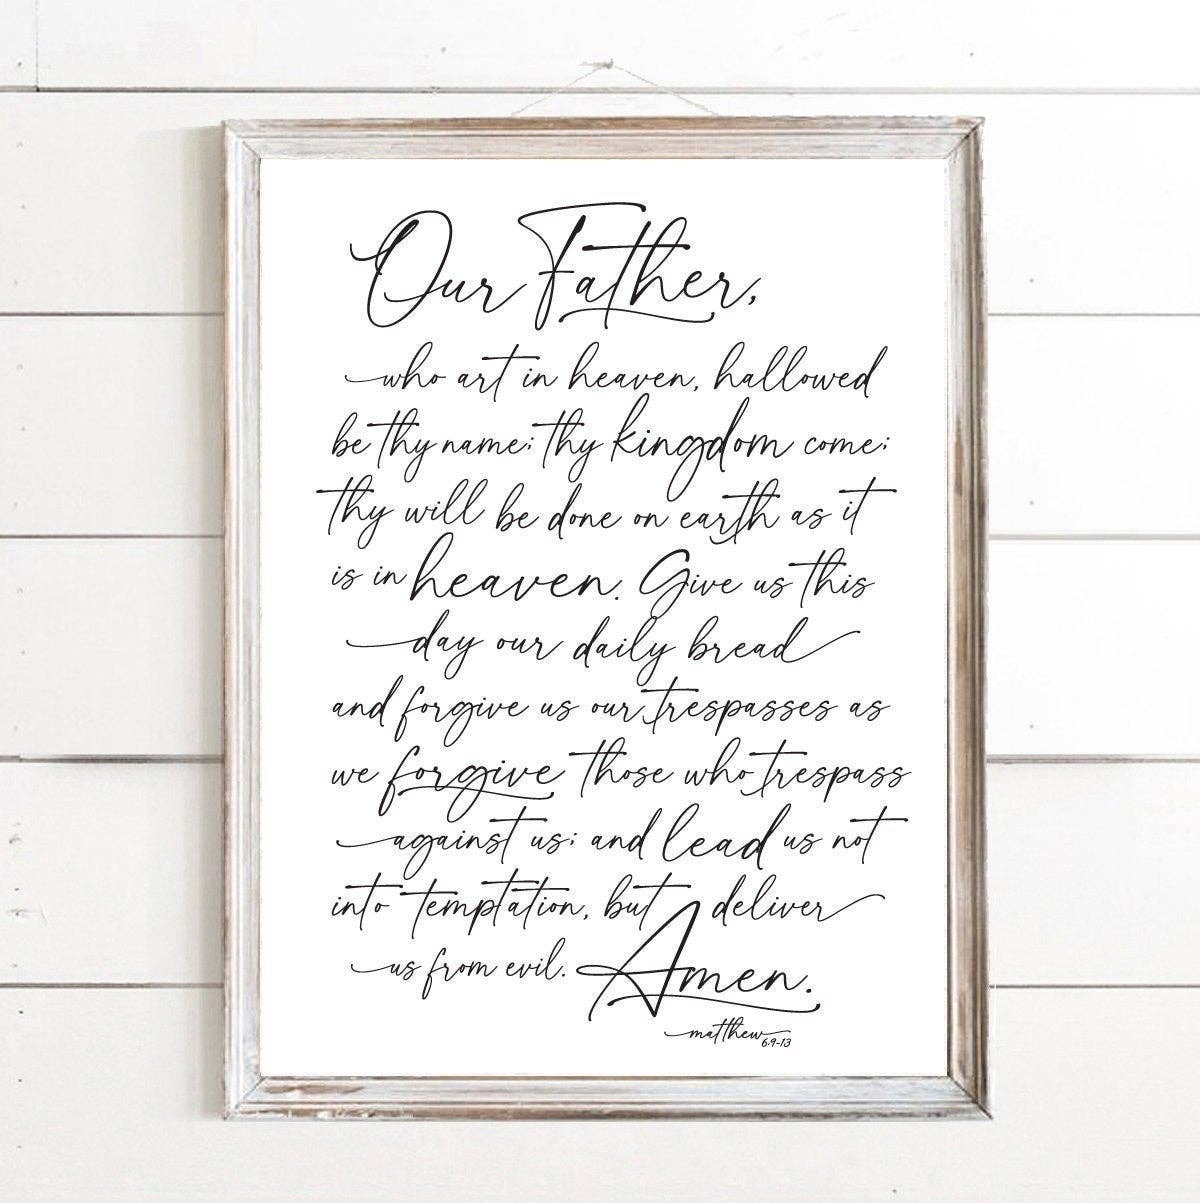 Our Father,
who art in heaven, hallowed
be thy name; thy kingdom come;
thy will be done on earth as it
is in heaven. Give us this
day our daily bread
and forgive us our trespasses as
we forgive those who trespass
against us; and lead us not
into temptation, but deliver
us from evil. Amen.
matthew 6:9-13